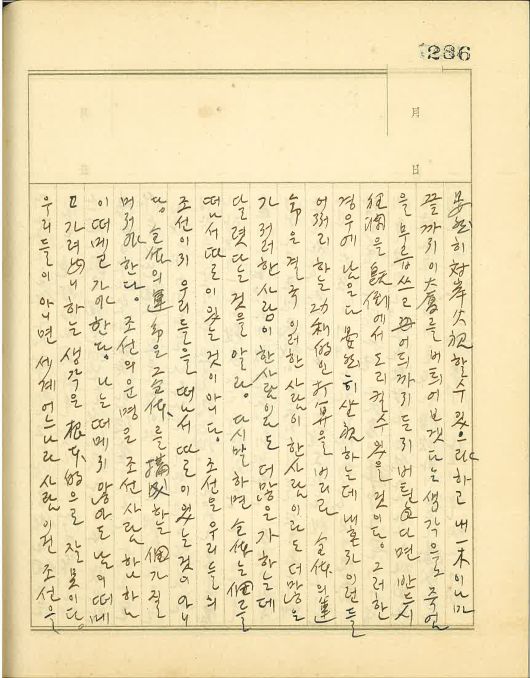 286
月
日
安然히 対岸火視할수 있으랴 하고 내 一木이나마
끝까지 이 大廈를 버틔여보겠다는 생각으로 죽엄
을 무릅쓰고 어듸까지든지 버틴다면 반드시
狂瀾을 旣倒에서 도리킬수 있을 것이다. 그러한
경우에 남은 다 晏然히 坐視하는데 내 혼자 이런들
어쩌리 하는 功利的인 打算을 버리고 全体의 運
命은 결국 이러한 사람이 한사람이라도 더 많은
가 저러한 사람이 한사람이라도 더 많은가 하는데
달렷다는 것을 알라. 다시 말하면 全体는 個를
떠나서 따로이 있는 것이 아니다. 조선은 우리들의
조선이지 우리들을 떠나서 따로이 있는 것이 아니
다. 全体의 運命은 그 全体를 構成하는 個가 질
머저야 한다. 조선의 운명은 조선사람 하나하나
이 떠메고 가야 한다. 나는 떠메지 않아도 남이 떠메
고 가려니 하는 생각은 根本的으로 잘못이다.
우리들이 아니면 세계 어느나라 사람이 원 조선을